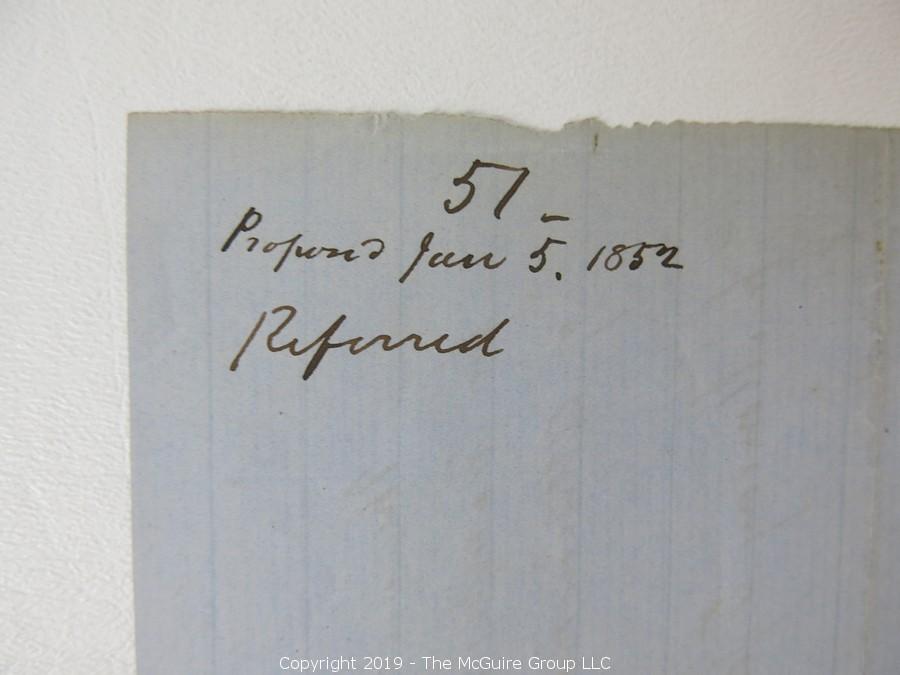 51 -
Proposed Jan 5. 1852
Referred
Copyright 2019 - The McGuire Group LLC